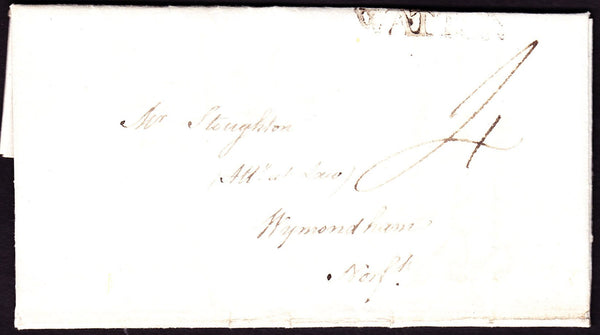 4
Mr Steughton
(Atty at Law)
Wymondham
Norf.k